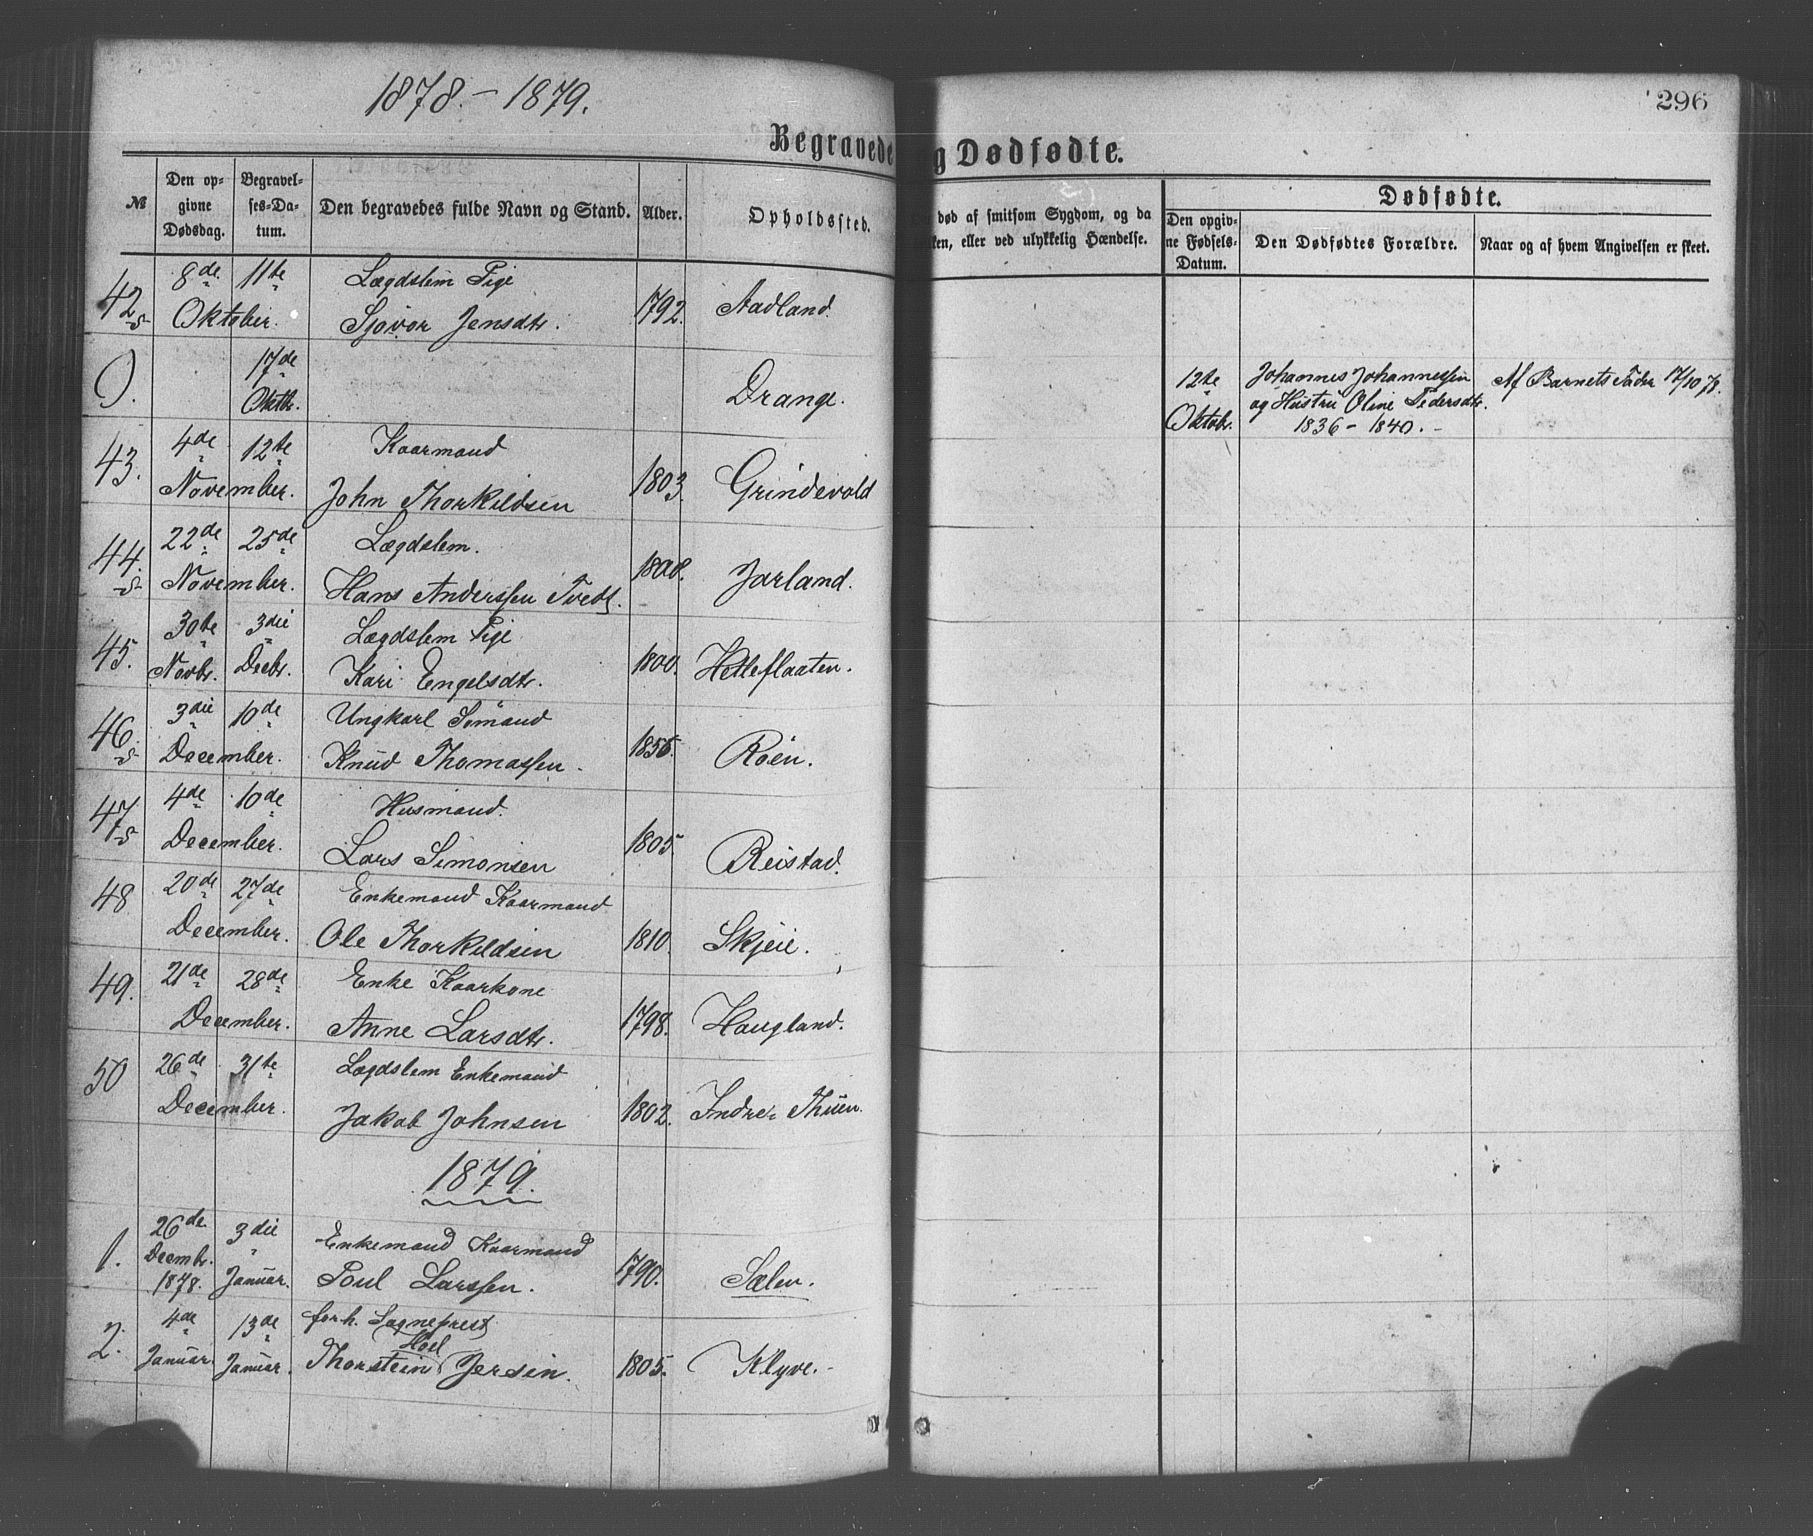 1878.-1879.
296
Begravede
g Dødfødte.
№
Den op-
givne
Dødsdag.
Begravel-
ses-Da-
tum.
Den begravedes fulde Navn og Stand.
Alder.
Opholdssted.
død af smitsom Sygdom, og da
ken, eller ved ulykkelig Hændelse.
Dødfødte.
Den opgiv-
ne Fødsels-
Datum.
Den Dødfødtes Forældre.
Naar og af hvem Angivelsen er skeet.
8de 11te Lægdslem Pige
42 Oktober. Sjovor Jensdtr. 1792. Aadland.
17de
Oktbr. Drange.
12te
Oktobr.
Johannes Johannessen
og Hustru Oline Pedersdtr.
1836 - 1840. -
Af Barnets Fader 17/10 78.
4de 12te Kaarmand
43. November. John Thorkildsen 1803. Grindevold
22de 25de Lægdslem.
44. November. Hans Anderssen Tvedt. Jarland.
30te 3die Lægdslem Pige
45. Novbr. Decbr. Kari Engelsdtr. 1800. Hetleflaaten.
3die 10de Ungkarl Sømand
46. December. Knud Thomassen. Røen.
4de 10de Husmand.
47 December. Lars Simonsen 1805. Reistad.
20de 27de Enkemand Kaarmand
48 December. Ole Thorkildsen 1810. Skjeie.
21de 28de Enke Kaarkone
49. December. Anne Larsdtr. 1798. Haugland.
26de 31te Lægdslem Enkemand
50 December. Jakob Johnsen 1802. Indre-Thuen.
1879.
26de 3die Enkemand Kaarmand
1. Decembr. Januar. Poul Larssen. 1790. Sælen.
1878.
4de 13de forh. Sogneprest
Hoel
2. Januar. Januar. Thorstein Jersin. 1805. Klyve. -